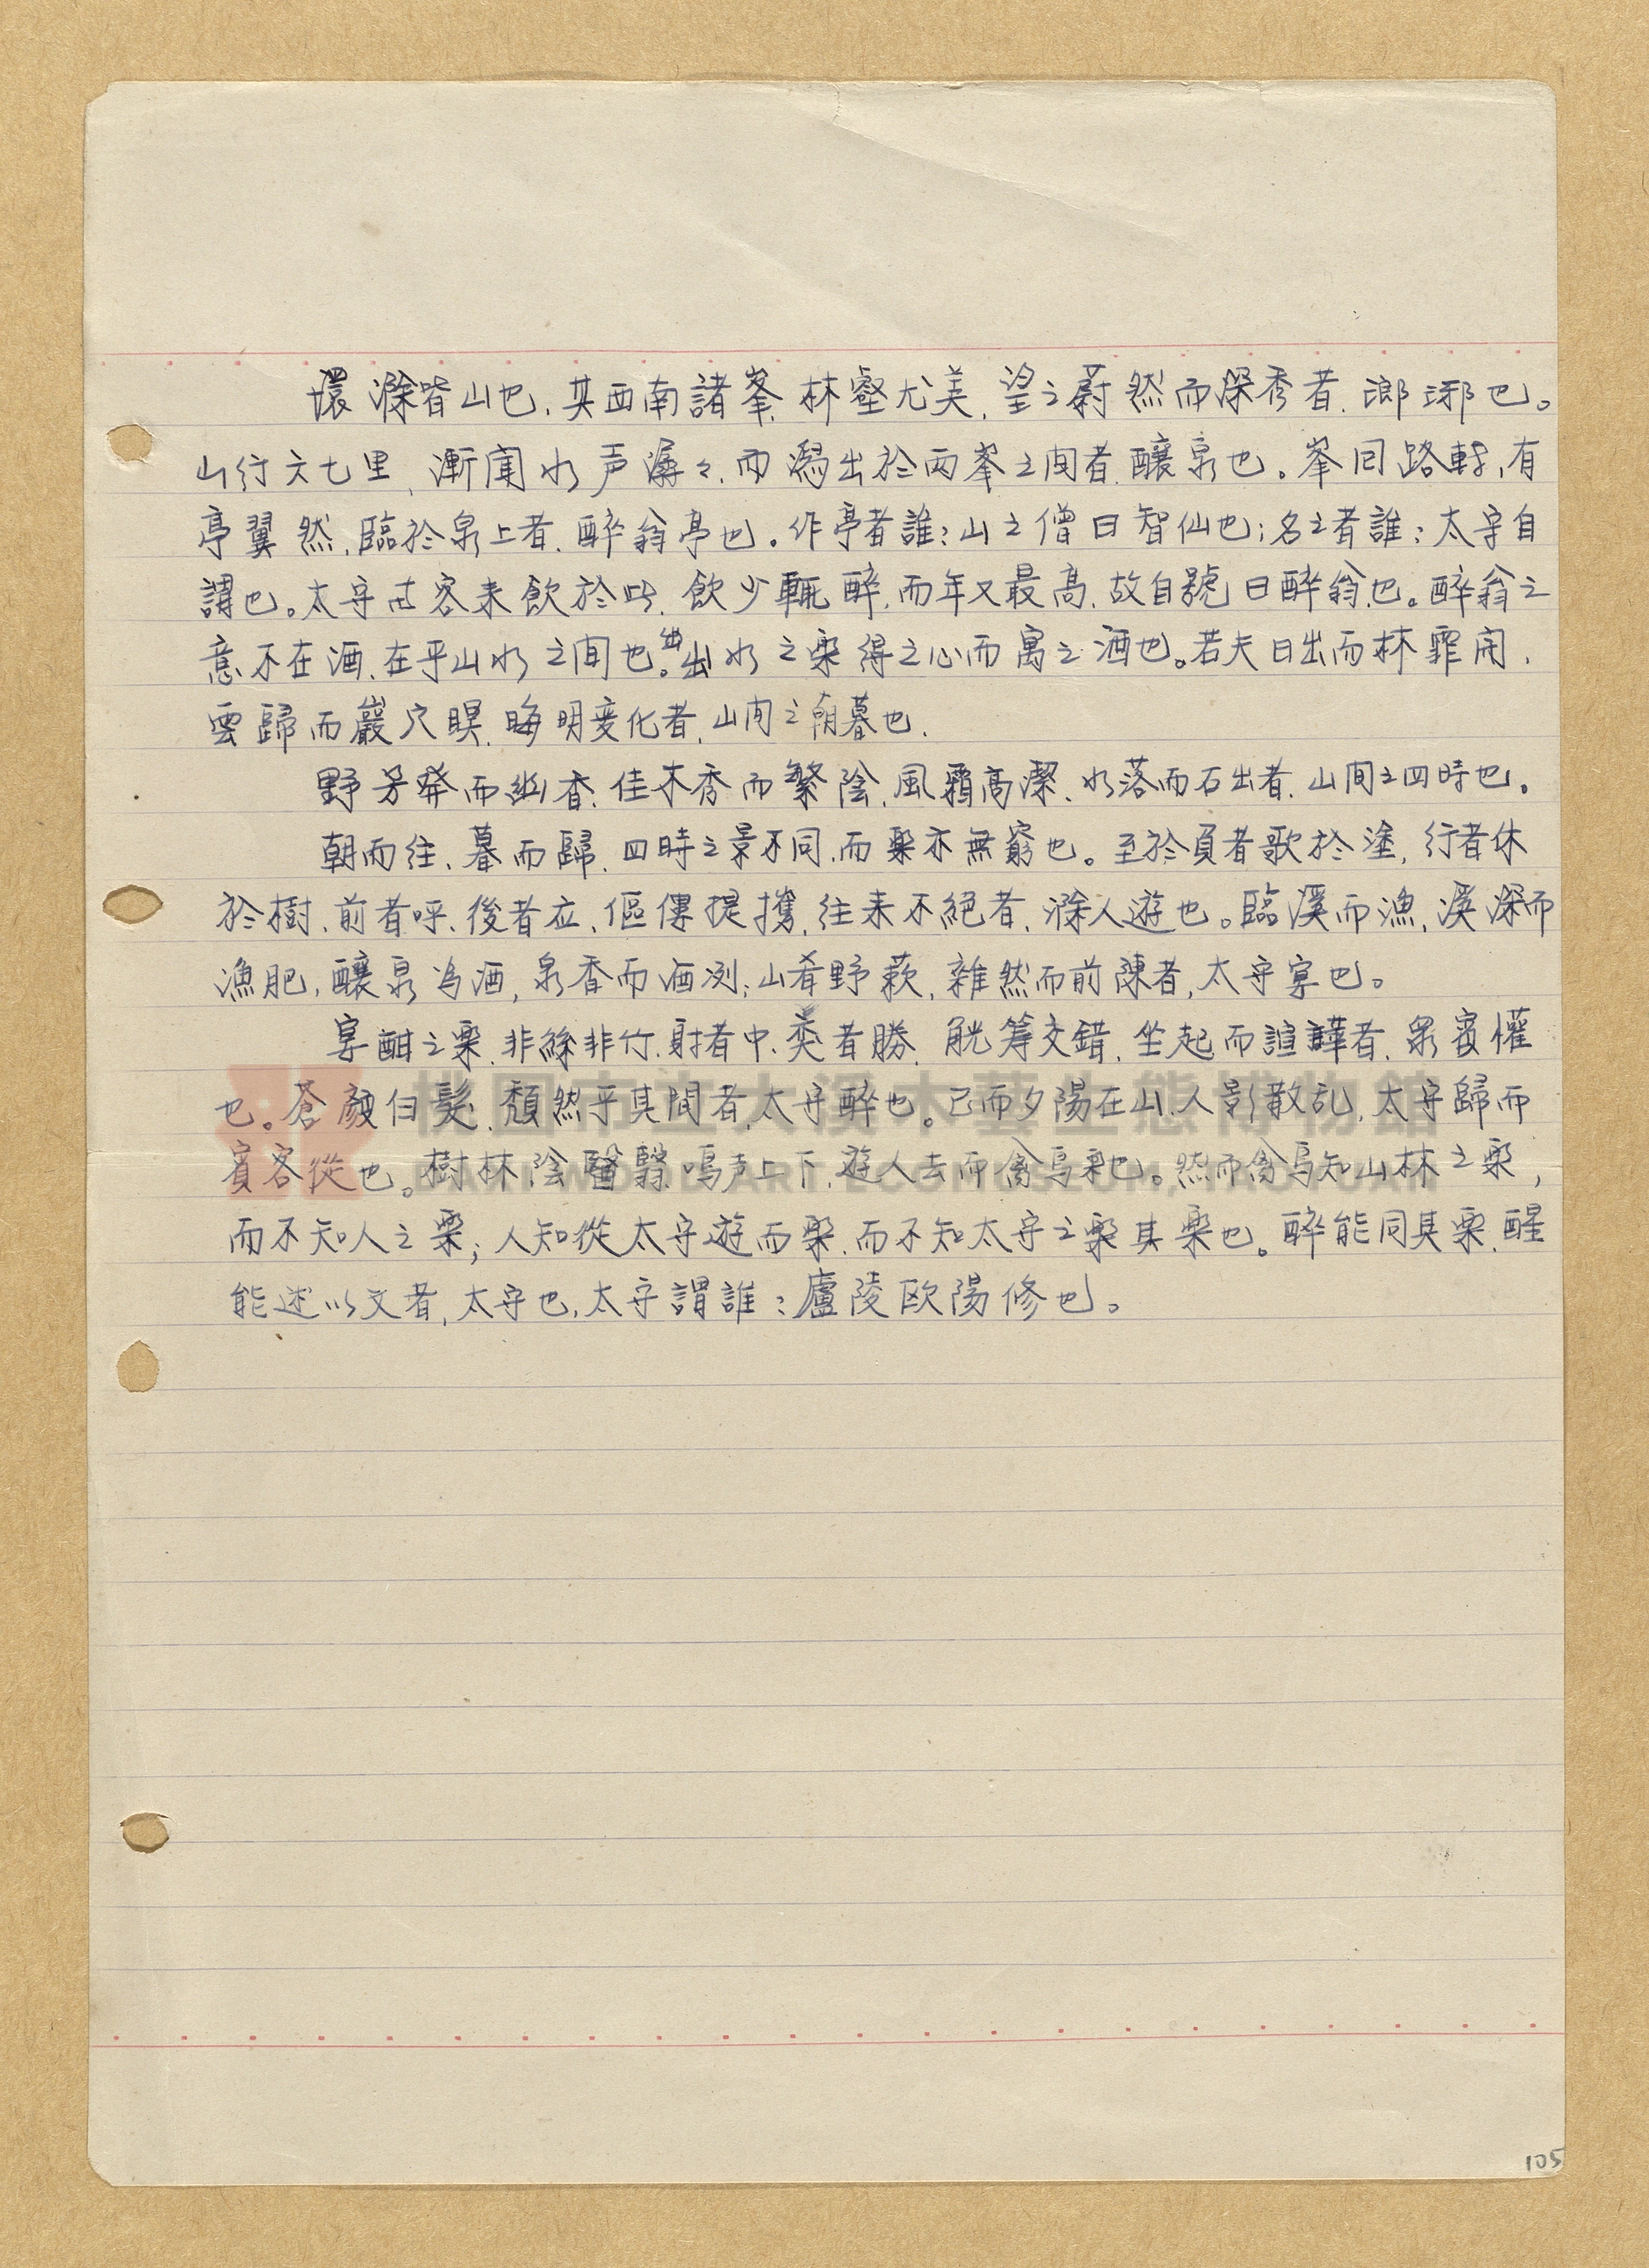 環滁皆山也、其西南諸峯、林壑尤美、望之蔚然而深秀者、瑯琊也。
山行六七里、漸闻水声潺々、而瀉出於两峯之间者、釀泉也。峯回路転、有
亭翼然、臨於泉上者、醉翁亭也。作亭者誰；山之僧曰智仙也；名之者誰；太守自
謂也。太守与客来飲於此、飲少輒醉、而年又最高、故自號曰醉翁也。醉翁之
意不在酒、在乎山水之间也。山水之楽得之心而寓之酒也。若夫日出而林霏闬、
雲歸而巖穴暝、晦明变化者、山间之朝暮也、
野芳発而幽香、佳木秀而繁陰、風霜高潔、水落而石出者、山间之四時也。
朝而往、暮而歸、四時之景不同、而楽亦無窮也。至於負者歌於塗、行者休
於樹、前者呼、後者应、傴僂提攜、往来不絕者、滁人遊也。臨溪而漁、溪深而
漁肥、釀泉為酒、泉香而酒洌；山肴野蔌、雜然而前陳者、太守宴也。
宴酣之楽、非絲非竹、射者中、奕者勝、觥筹交錯、坐起而諠譁者、眾賓懽
也。蒼顏白髮、頹然乎其間者、太守醉也。已而夕陽在山、人影散乱、太守歸而
賓客從也。樹林陰翳、鳴声上下、遊人去而禽鳥楽也。然而禽鳥知山林之楽，
而不知人之楽；人知從太守遊而楽、而不知太守之楽其楽也。醉能同其楽、醒
能述以文者、太守也、太守謂誰；廬陵欧陽修也。
桃園市立大溪木藝生態博物館
DAXI WOOD ART ECOMUSEUM, TAOYUAN
105